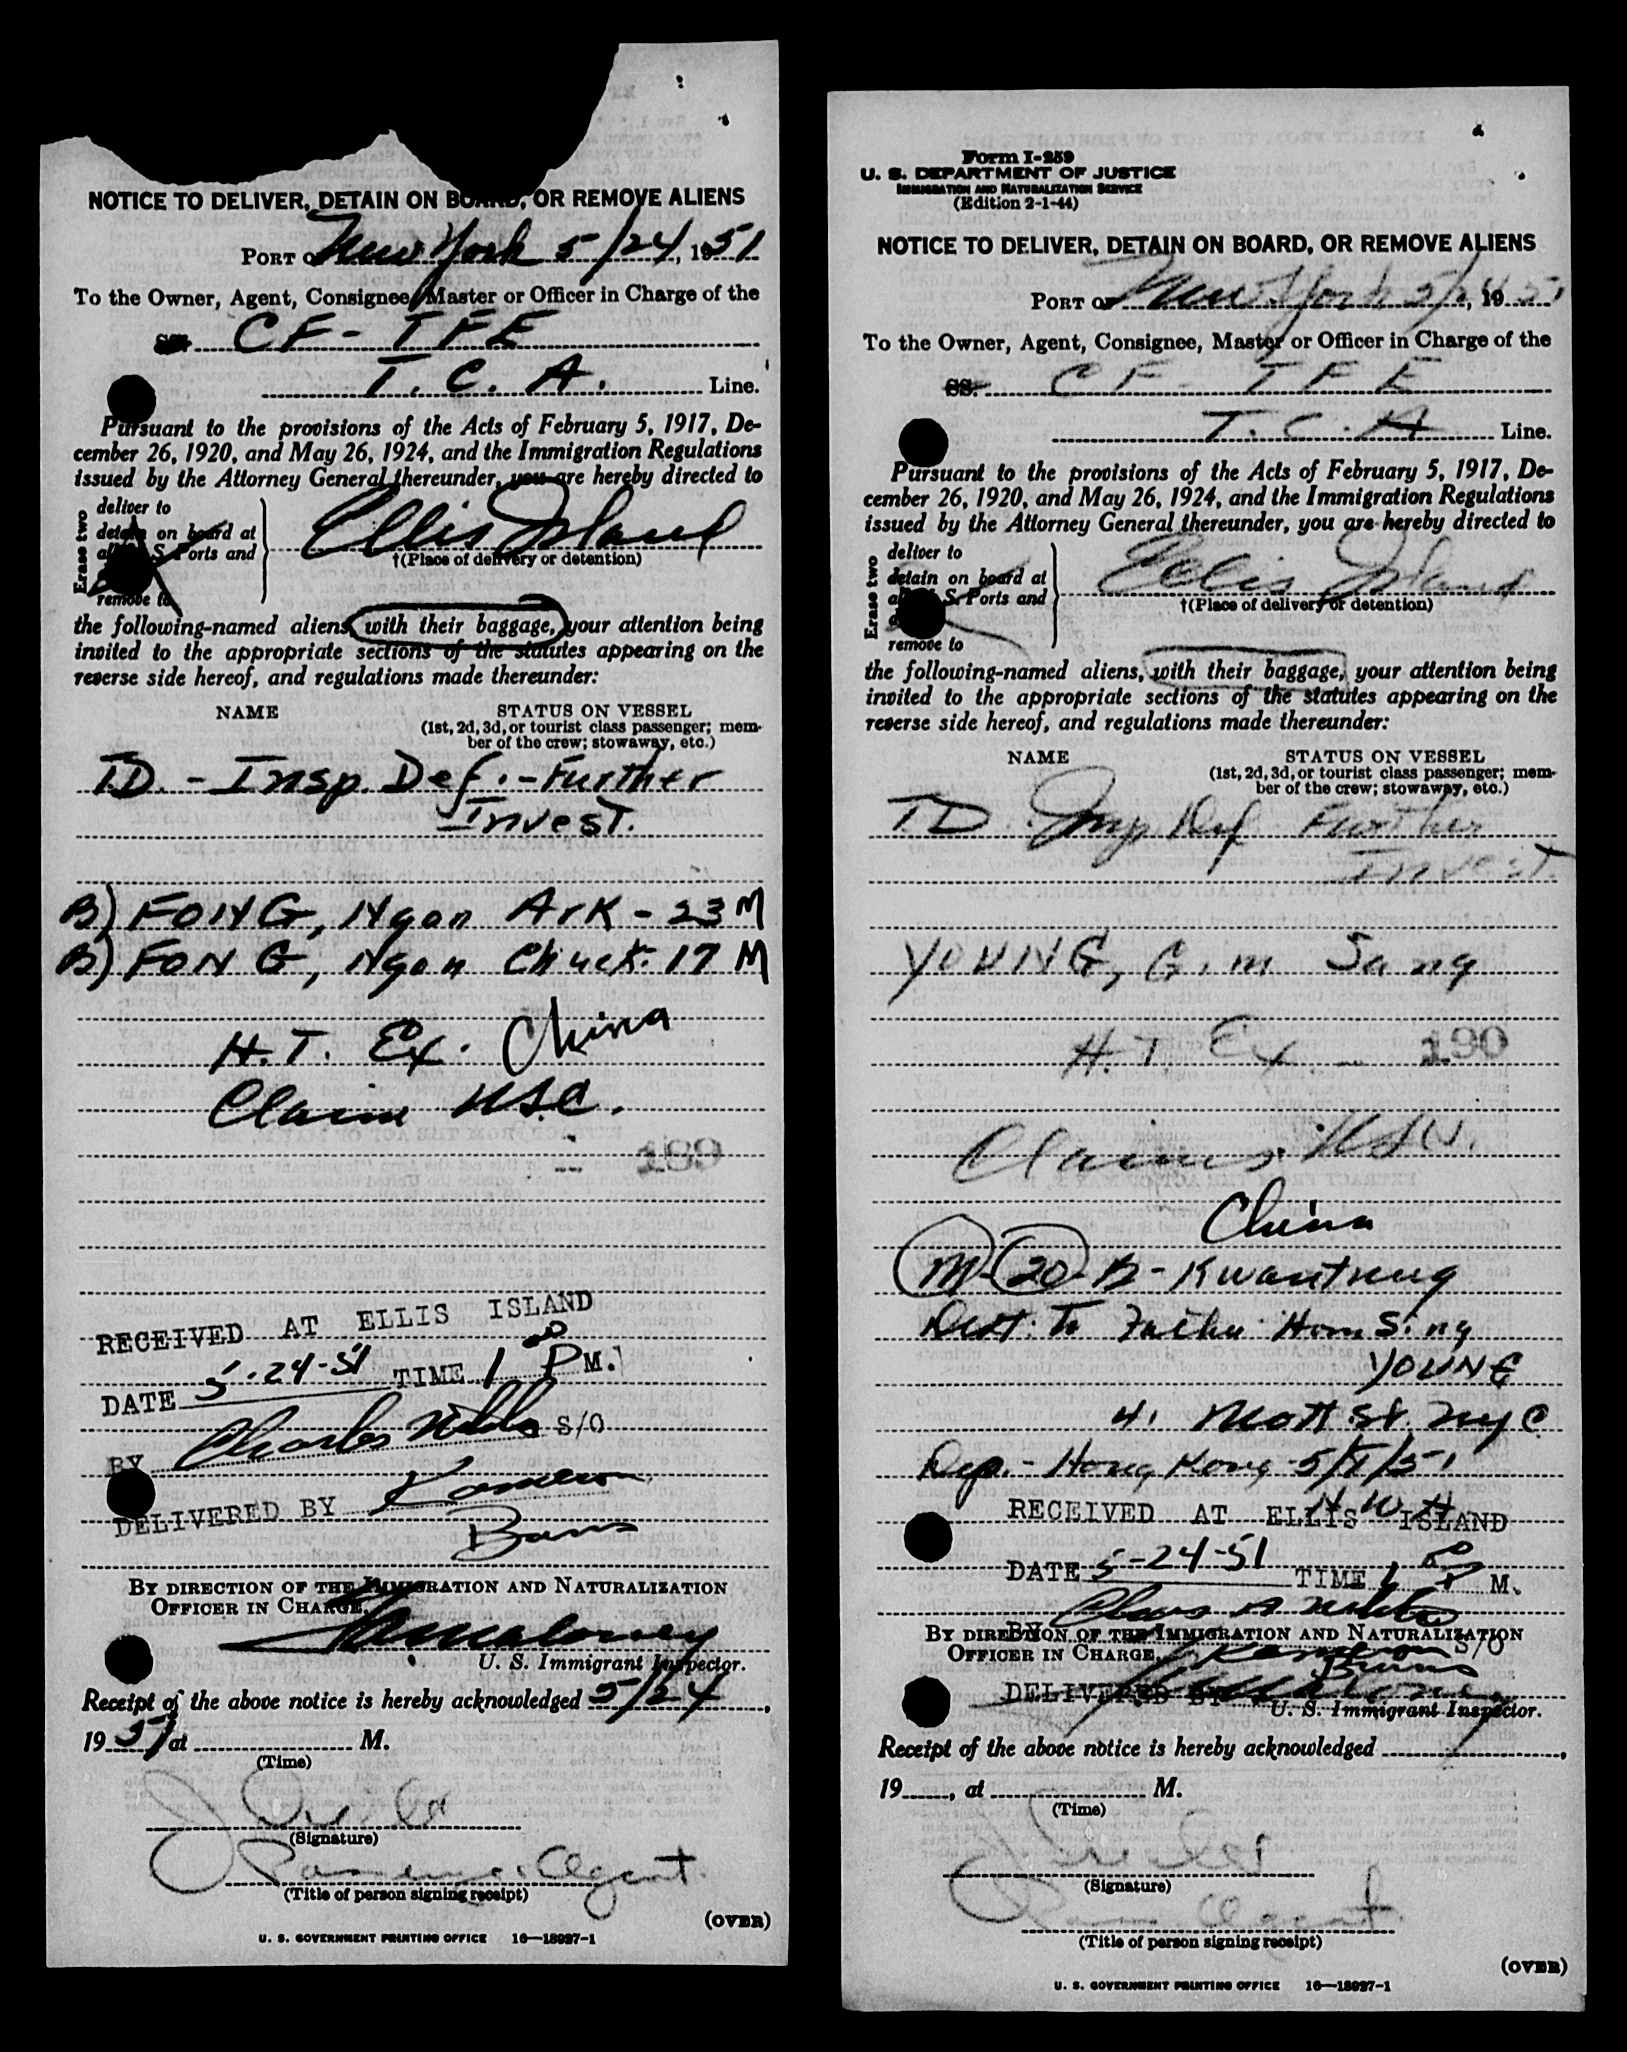 NOTICE TO DELIVER, DETAIN ON BOARD, OR REMOVE ALIENS
PORT OF New York 5/24, 1951
To the Owner, Agent, Consignee, Master or Officer in Charge of the
SS. CF-TFE
T. C. A. Line.
Pursuant to the provisions of the Acts of February 5, 1917, De-
cember 26, 1920, and May 26, 1924, and the Immigration Regulations
issued by the Attorney General thereunder, you are hereby directed to
Erase two
deliver to
detain on board at
S. Ports and
remove to
Ellis Island
†(Place of delivery or detention)
the following-named aliens, with their baggage, your attention being
invited to the appropriate sections of the statutes appearing on the
reverse side hereof, and regulations made thereunder:
NAME
STATUS ON VESSEL
(1st, 2d, 3d, or tourist class passenger; mem-
ber of the crew; stowaway, etc.)
T.D. - Insp. Def. - Further
Invest.
B) FONG, Ngon Ark - 23 M
B) FONG, Ngon Chuck - 17 M
H.T. Ex. China
Claim USC.
189
RECEIVED AT ELLIS ISLAND
DATE 5-24-51 TIME 1 00 P M.
BY Charles S/O
DELIVERED BY
BY DIRECTION OF THE IMMIGRATION AND NATURALIZATION
OFFICER IN CHARGE,
Maloney
U. S. Immigrant Inspector.
Receipt of the above notice is hereby acknowledged 5/24,
1951 at M.
(Time)
(Signature)
Passenger Agent.
(Title of person signing receipt)
(OVER)
U. S. GOVERNMENT PRINTING OFFICE 16—18027-1
Form I-259
U. S. DEPARTMENT OF JUSTICE
IMMIGRATION AND NATURALIZATION SERVICE
(Edition 2-1-44)
NOTICE TO DELIVER, DETAIN ON BOARD, OR REMOVE ALIENS
PORT OF New York 5/24, 1951
To the Owner, Agent, Consignee, Master or Officer in Charge of the
SS. CF-TFE
T. C. A Line.
Pursuant to the provisions of the Acts of February 5, 1917, De-
cember 26, 1920, and May 26, 1924, and the Immigration Regulations
issued by the Attorney General thereunder, you are hereby directed to
Erase two
deliver to
detain on board at
S. Ports and
remove to
Ellis Island
†(Place of delivery or detention)
the following-named aliens, with their baggage, your attention being
invited to the appropriate sections of the statutes appearing on the
reverse side hereof, and regulations made thereunder:
NAME
STATUS ON VESSEL
(1st, 2d, 3d, or tourist class passenger; mem-
ber of the crew; stowaway, etc.)
T D. Insp Def Further
Invest.
YOUNG, Gim Sang
H.T. Ex. - 190
Claims
China
M-20-B-Kwantung
Dest: To Father Hom Sing
YOUNG
41 Mott St. NYC
Dep. - Hong Kong 5/1/51
N W A
RECEIVED AT ELLIS ISLAND
DATE 5-24-51 TIME 1 P M.
BY S/O
BY DIRECTION OF THE IMMIGRATION AND NATURALIZATION
OFFICER IN CHARGE,
DELIVERED BY
U. S. Immigrant Inspector.
Receipt of the above notice is hereby acknowledged ,
19 , at M.
(Time)
(Signature)
Agent
(Title of person signing receipt)
(OVER)
U. S. GOVERNMENT PRINTING OFFICE 16—18027-1